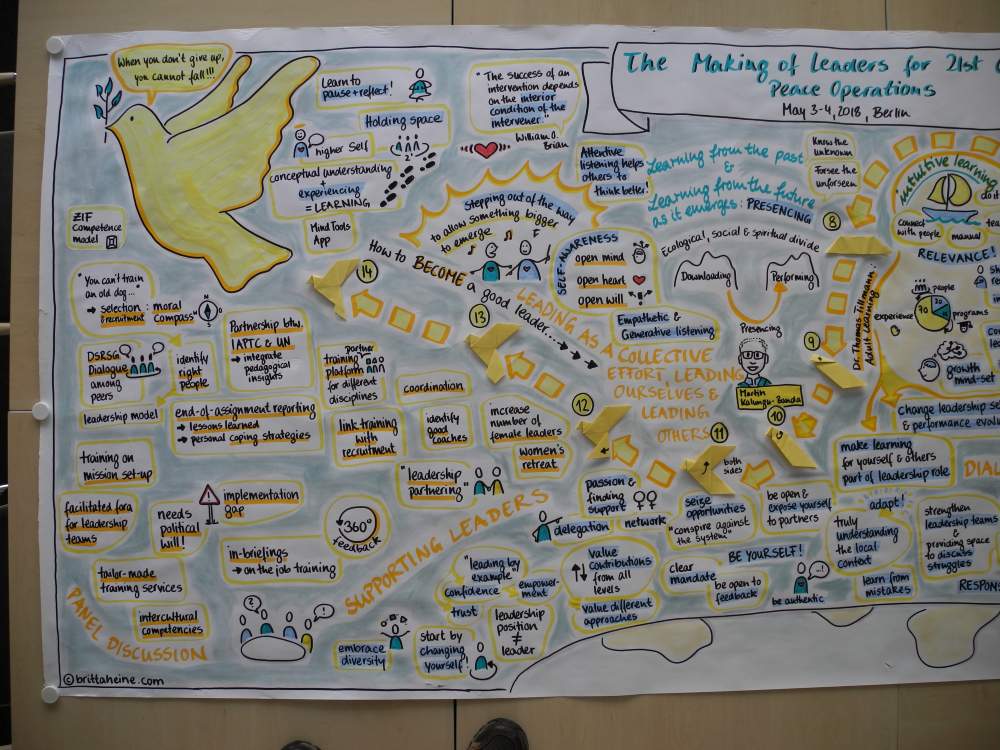 When you don't give up,
you cannot fall!!!
The Making of Leaders for 21st
Peace Operations
May 3-4, 2018, Berlin
Learn to
pause + reflect!
Holding space
higher Self
conceptual understanding
+
experiencing
= LEARNING
Mind Tools
App
"The success of an
intervention depends
on the interior
condition of the
intervener."
William O.
Brian
Attentive
listening helps
others to
think better!
Learning from the past
&
Learning from the future
as it emerges: PRESENCING
Know the
unknown
Forsee the
unforseen
8
intuitive learning
do it
connect
with people
manual
RELEVANCE!
ZIF
Competence
model
Stepping out of the way
to allow something bigger
to emerge
SELF-AWARENESS
open mind
open heart
open will
Ecological, social & spiritual divide
Downloading
Performing
Presencing
Martin
Kalungu-Banda
Dr. Thomas Tillmann:
Adult Learning
people
experience
programs
70
20
10
growth
mind-set
change leadership
& performance
How to BECOME a good leader...
14
13
12
11
10
9
LEADING AS A
COLLECTIVE
EFFORT, LEADING
OURSELVES &
LEADING
OTHERS
Empathetic &
Generative listening
both
sides
"You can't train
an old dog..."
→ selection: moral
& recruitment compass"
N
DSRSG
Dialogue
among
peers
identify
right
people
Partnership btw.
IAPTC & UN
→ integrate
pedagogical
insights
partner
training
platform
for different
disciplines
coordination
leadership model
end-of-assignment reporting
→ lessons learned
→ personal coping strategies
link training
with
recruitment
identify
good
coaches
increase
number of
female leaders
women's
retreat
training on
mission set-up
"leadership
partnering"
facilitated fora
for leadership
teams
needs
political
will!
!
implementation
gap
360°
feedback
in-briefings
→ on the job training
tailor-made
training services
intercultural
competencies
PANEL DISCUSSION
SUPPORTING LEADERS
?
!
embrace
diversity
start by
changing
yourself!
"leading by
example"
confidence
empower-
ment
trust
leadership
position
≠
leader
delegation
passion &
finding
support
network
seize
opportunities
"conspire against
the system"
be open &
expose yourself
to partners
value
contributions
from all
levels
value different
approaches
clear
mandate
BE YOURSELF!
be open to
feedback
be authentic
make learning
for yourself & others
part of leadership role
adapt!
truly
understanding
the local
context
learn from
mistakes
strengthen
leadership teams
&
providing space
to discuss
struggles
©brittaheine.com